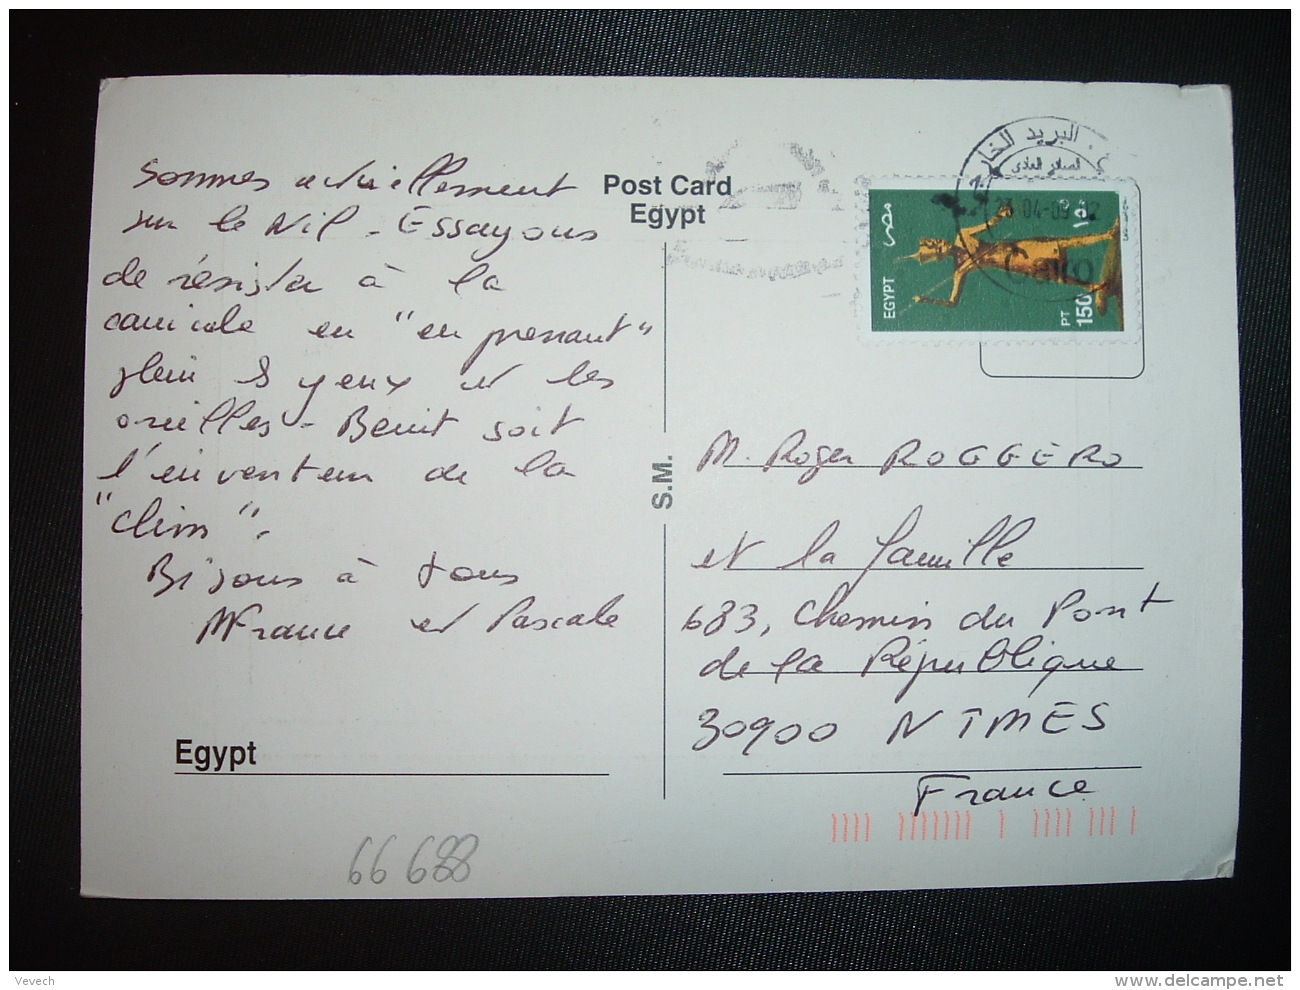 Post Card
Egypt
Sommes actuellement
sur le Nil - Essayons
de résister à la
canicule en "en prenant"
plein les yeux et les
oreilles - Benit soit
l'inventeur de la
"clim".
Bisous à tous
MFrance et Pascale
Egypt
66 688
S.M.
البريد
مصر
EGYPT
150
PT
١٥٠
Cairo
M. Roger ROGGERO
et la famille
683, Chemin du Pont
de la République
30900 NIMES
France
Vevech
www.delcampe.net